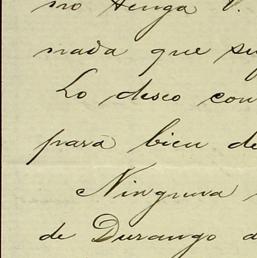 no tenga V.
nada que su
Lo deseo con
para bien de
Ninguna
de Durango a